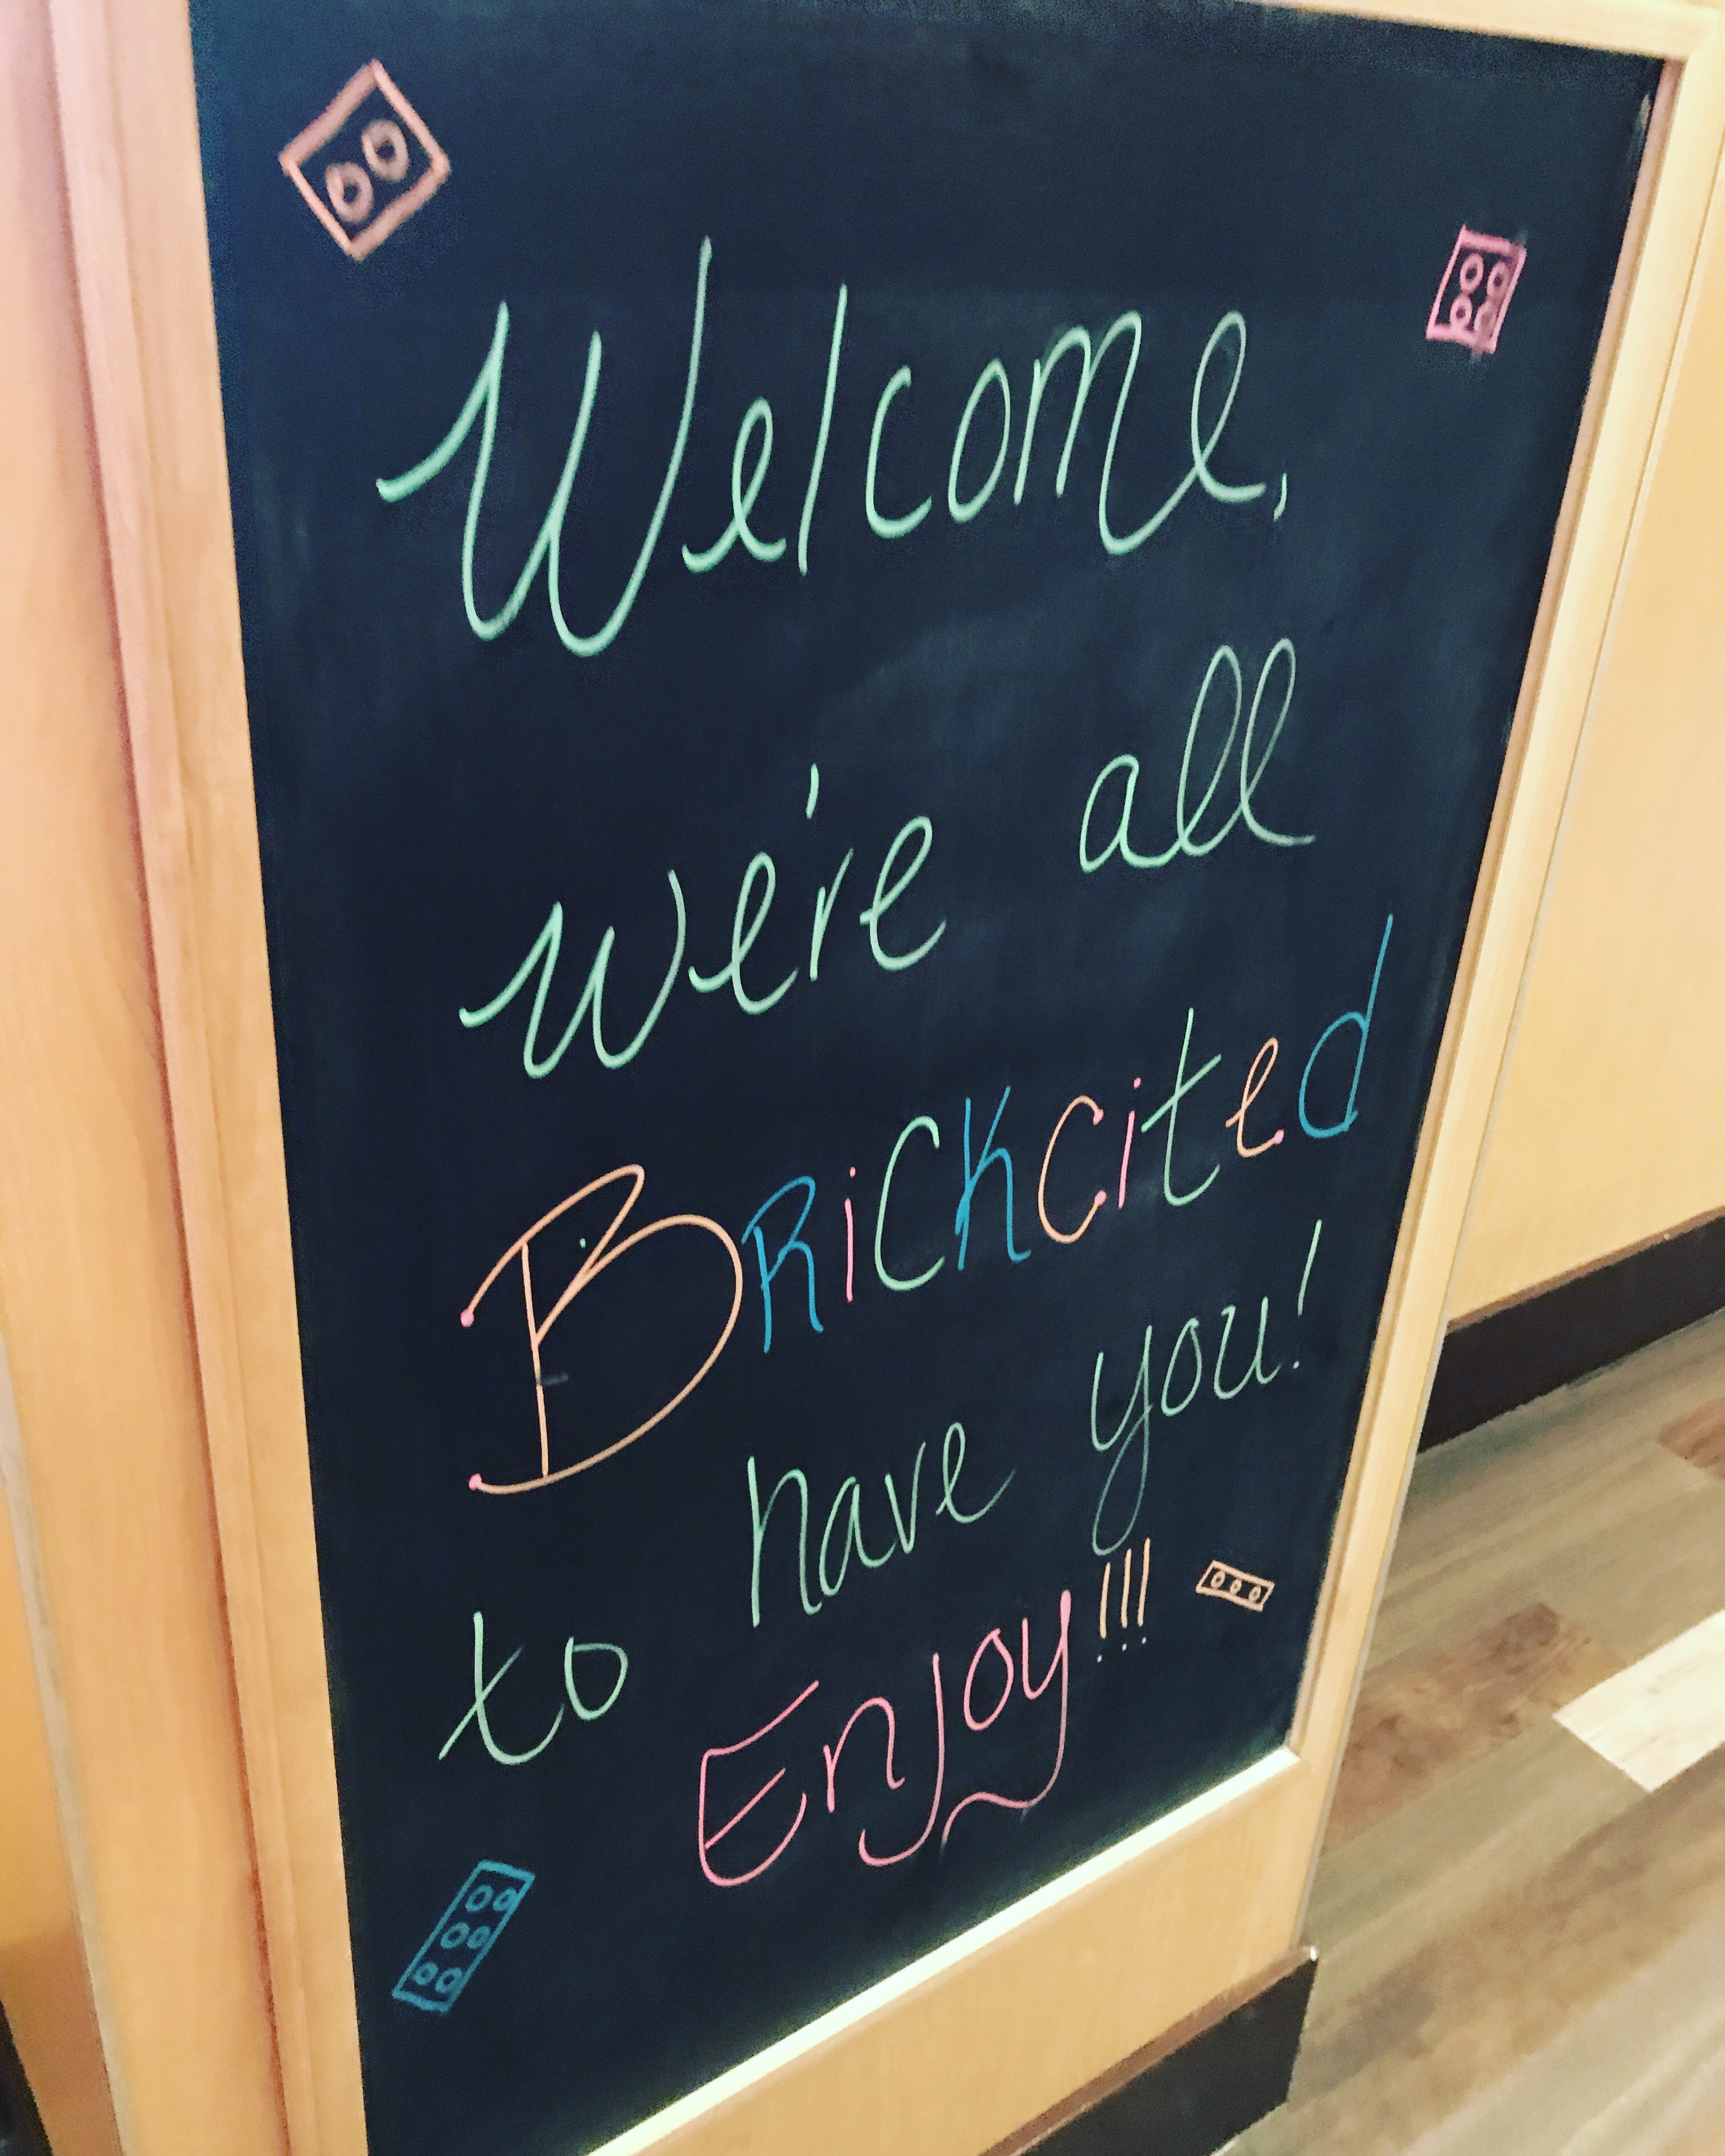 Welcome,
we're all
BRiCKCited
to have you!
Enjoy!!!